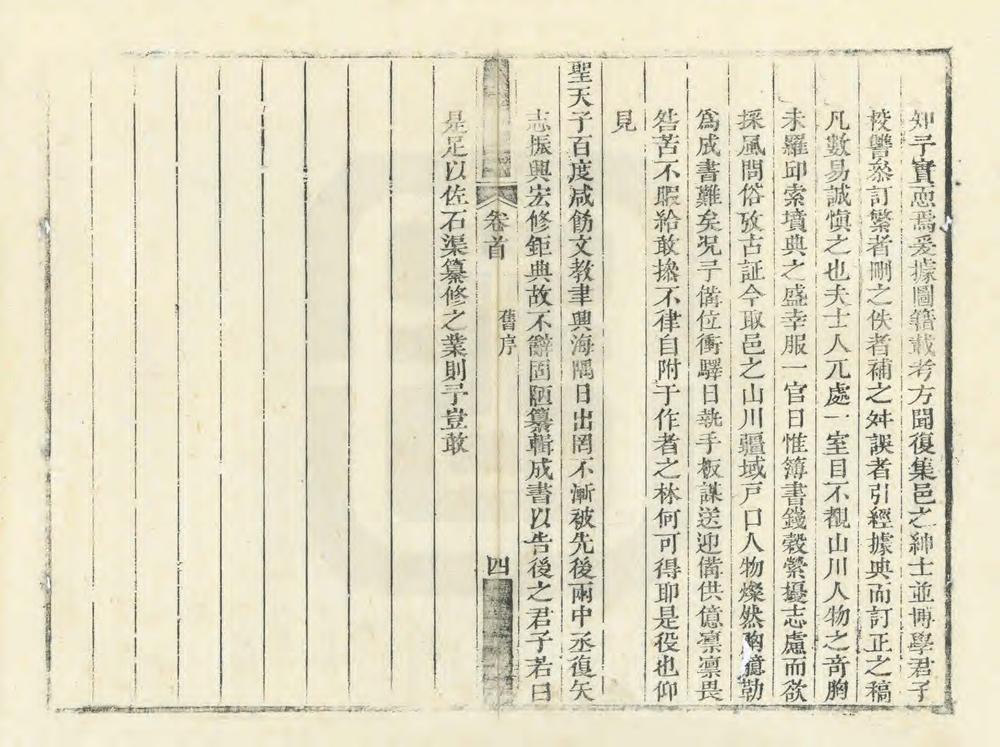 知予實恧焉爰據圖籍載考方聞復集邑之紳士並博學君子
校讐叅訂繁者刪之佚者補之舛誤者引經據典而訂正之稿
凡數易誠愼之也夫士人兀處一室目不覩山川人物之奇胸
未羅邱索墳典之盛幸服一官日惟簿書錢穀縈擾志慮而欲
採風問俗攷古証今取邑之山川疆域戸口人物燦然胸臆勒
爲成書難矣况予偹位衝驛日執手板謀送迎偹供億凛凛畏
咎苦不暇給敢搃不律自附于作者之林何可得耶是役也仰
見
聖天子百度咸飭文教聿興海隅日出罔不漸被先後兩中丞復矢
志振興宏修鉅典故不辭固陋纂輯成書以告後之君子若曰
卷首
舊序
四
是足以佐石渠纂修之業則予豈敢